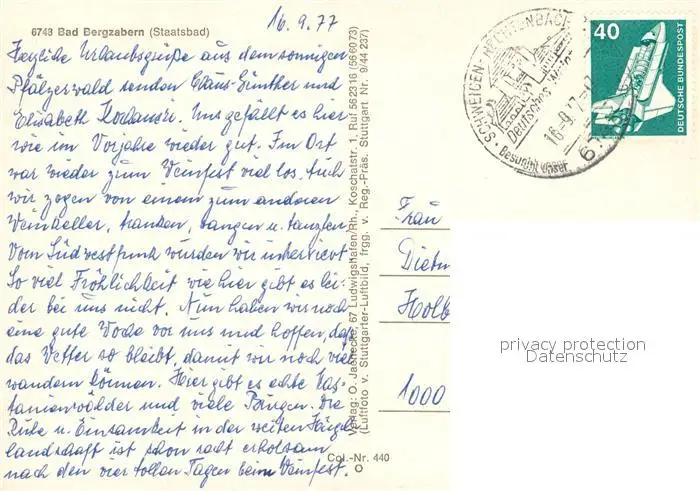 16.9.77
6748 Bad Bergzabern (Staatsbad)
Herzliche Urlaubsgrüße aus dem sonnigen
Pfälzerwald senden Claus-Günther und
Elisabeth. Uns gefällt es hier
wie im Vorjahre wieder gut. Im Ort
war wieder zum Weinfest viel los. Auch
wir zogen von einem zum anderen
Weinkeller, tranken, sangen u. tanzten.
Vom Südwestfunk wurden wir interviewt.
So viel Fröhlichkeit wie hier gibt es lei-
der bei uns nicht. Nun haben wir noch
eine gute Woche vor uns und hoffen, daß
das Wetter so bleibt, damit wir noch viel
wandern können. Hier gibt es echte Kas-
tanienwälder und viele Burgen. Die
Ruhe u. Einsamkeit in der weiten Hügel
landschaft ist schon sehr erholsam
nach den vier tollen Tagen beim Weinfest.
Verlag: O. Jaenecke, 67 Ludwigshafen/Rh., Koschatstr. 1, Ruf 562316 (566073)
(Luftfoto v. Stuttgarter-Luftbild, frgg. v. Reg.-Präs. Stuttgart Nr. 9/44 237)
Col.-Nr. 440
SCHWEIGEN-RECHTENBACH
Deutsches Weintor
16.-9.77
Besucht unser
67
40
DEUTSCHE BUNDESPOST
Frau
Dietm
Holb
1000
privacy protection
Datenschutz